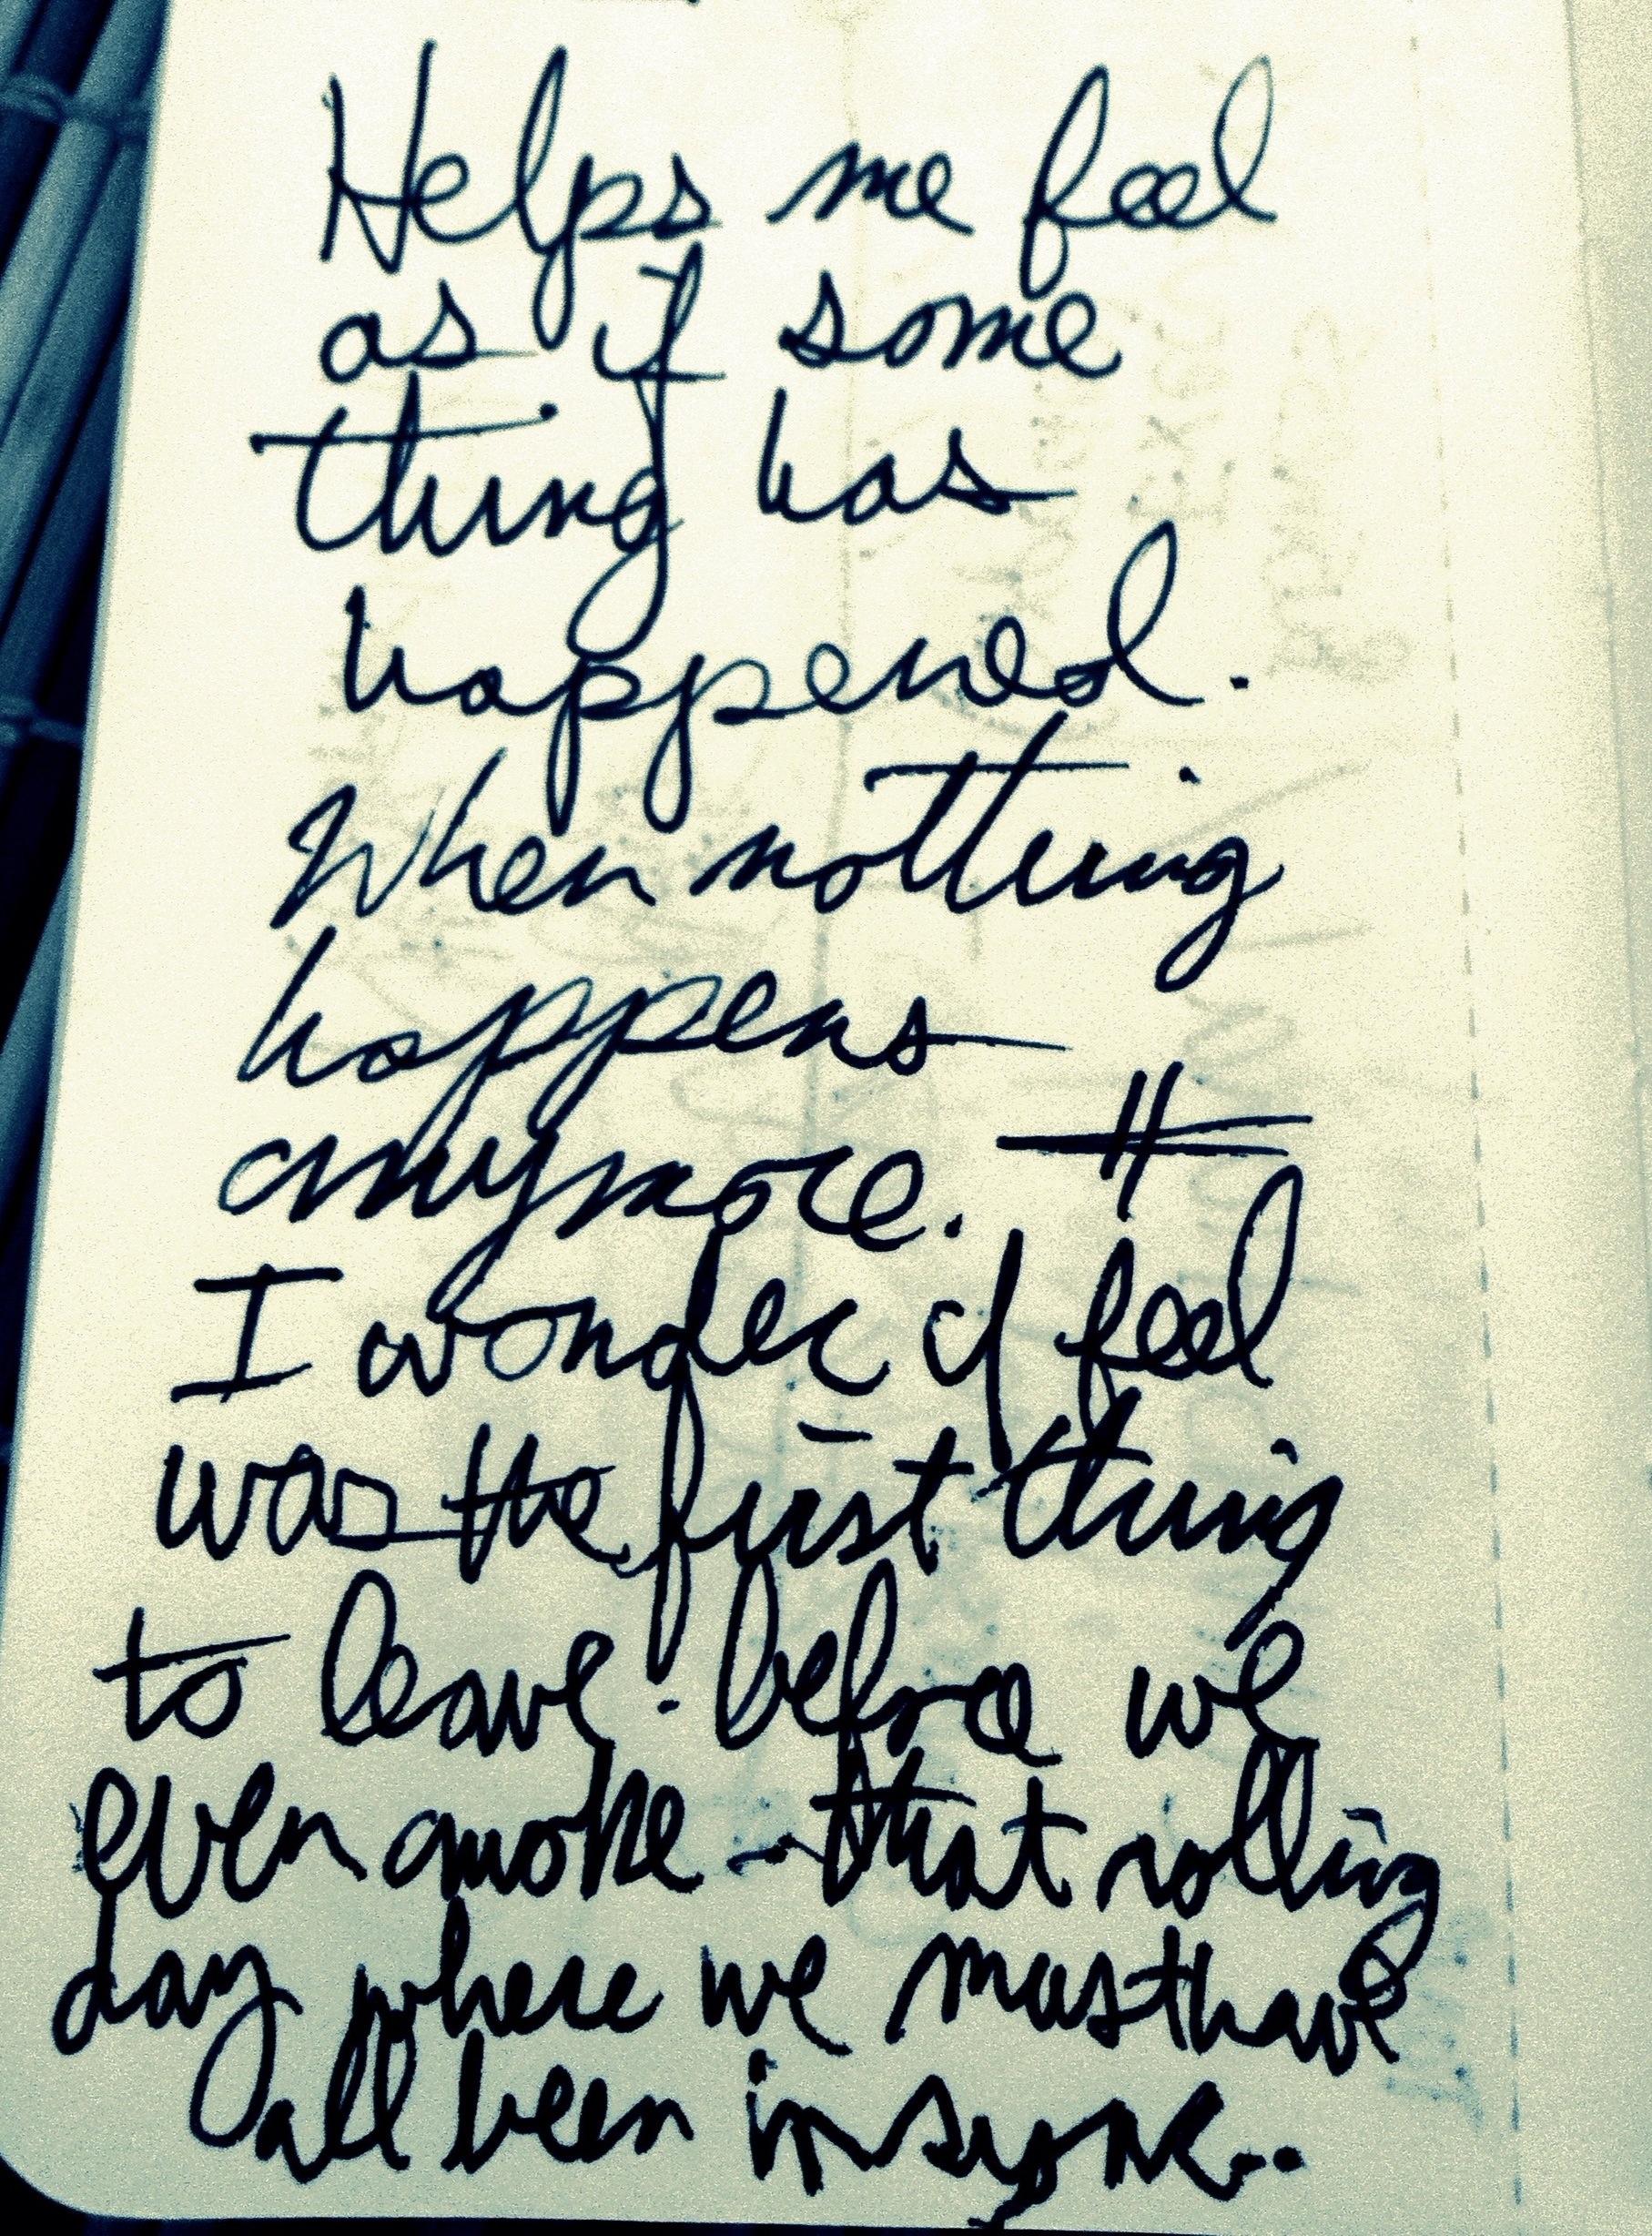 Helps me feel
as if some
thing has
happened.
When nothing
happens
anymore. #
I wonder if feel
was the first thing
to leave. before we
even awoke - that rolling
day where we must have
all been in sync..